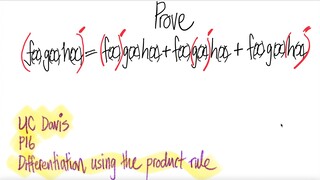 Prove
(f(x)g(x)h(x))' = (f(x))'g(x)h(x) + f(x)(g(x))'h(x) + f(x)g(x)(h(x))'
UC Davis
P16
Differentiation using the product rule